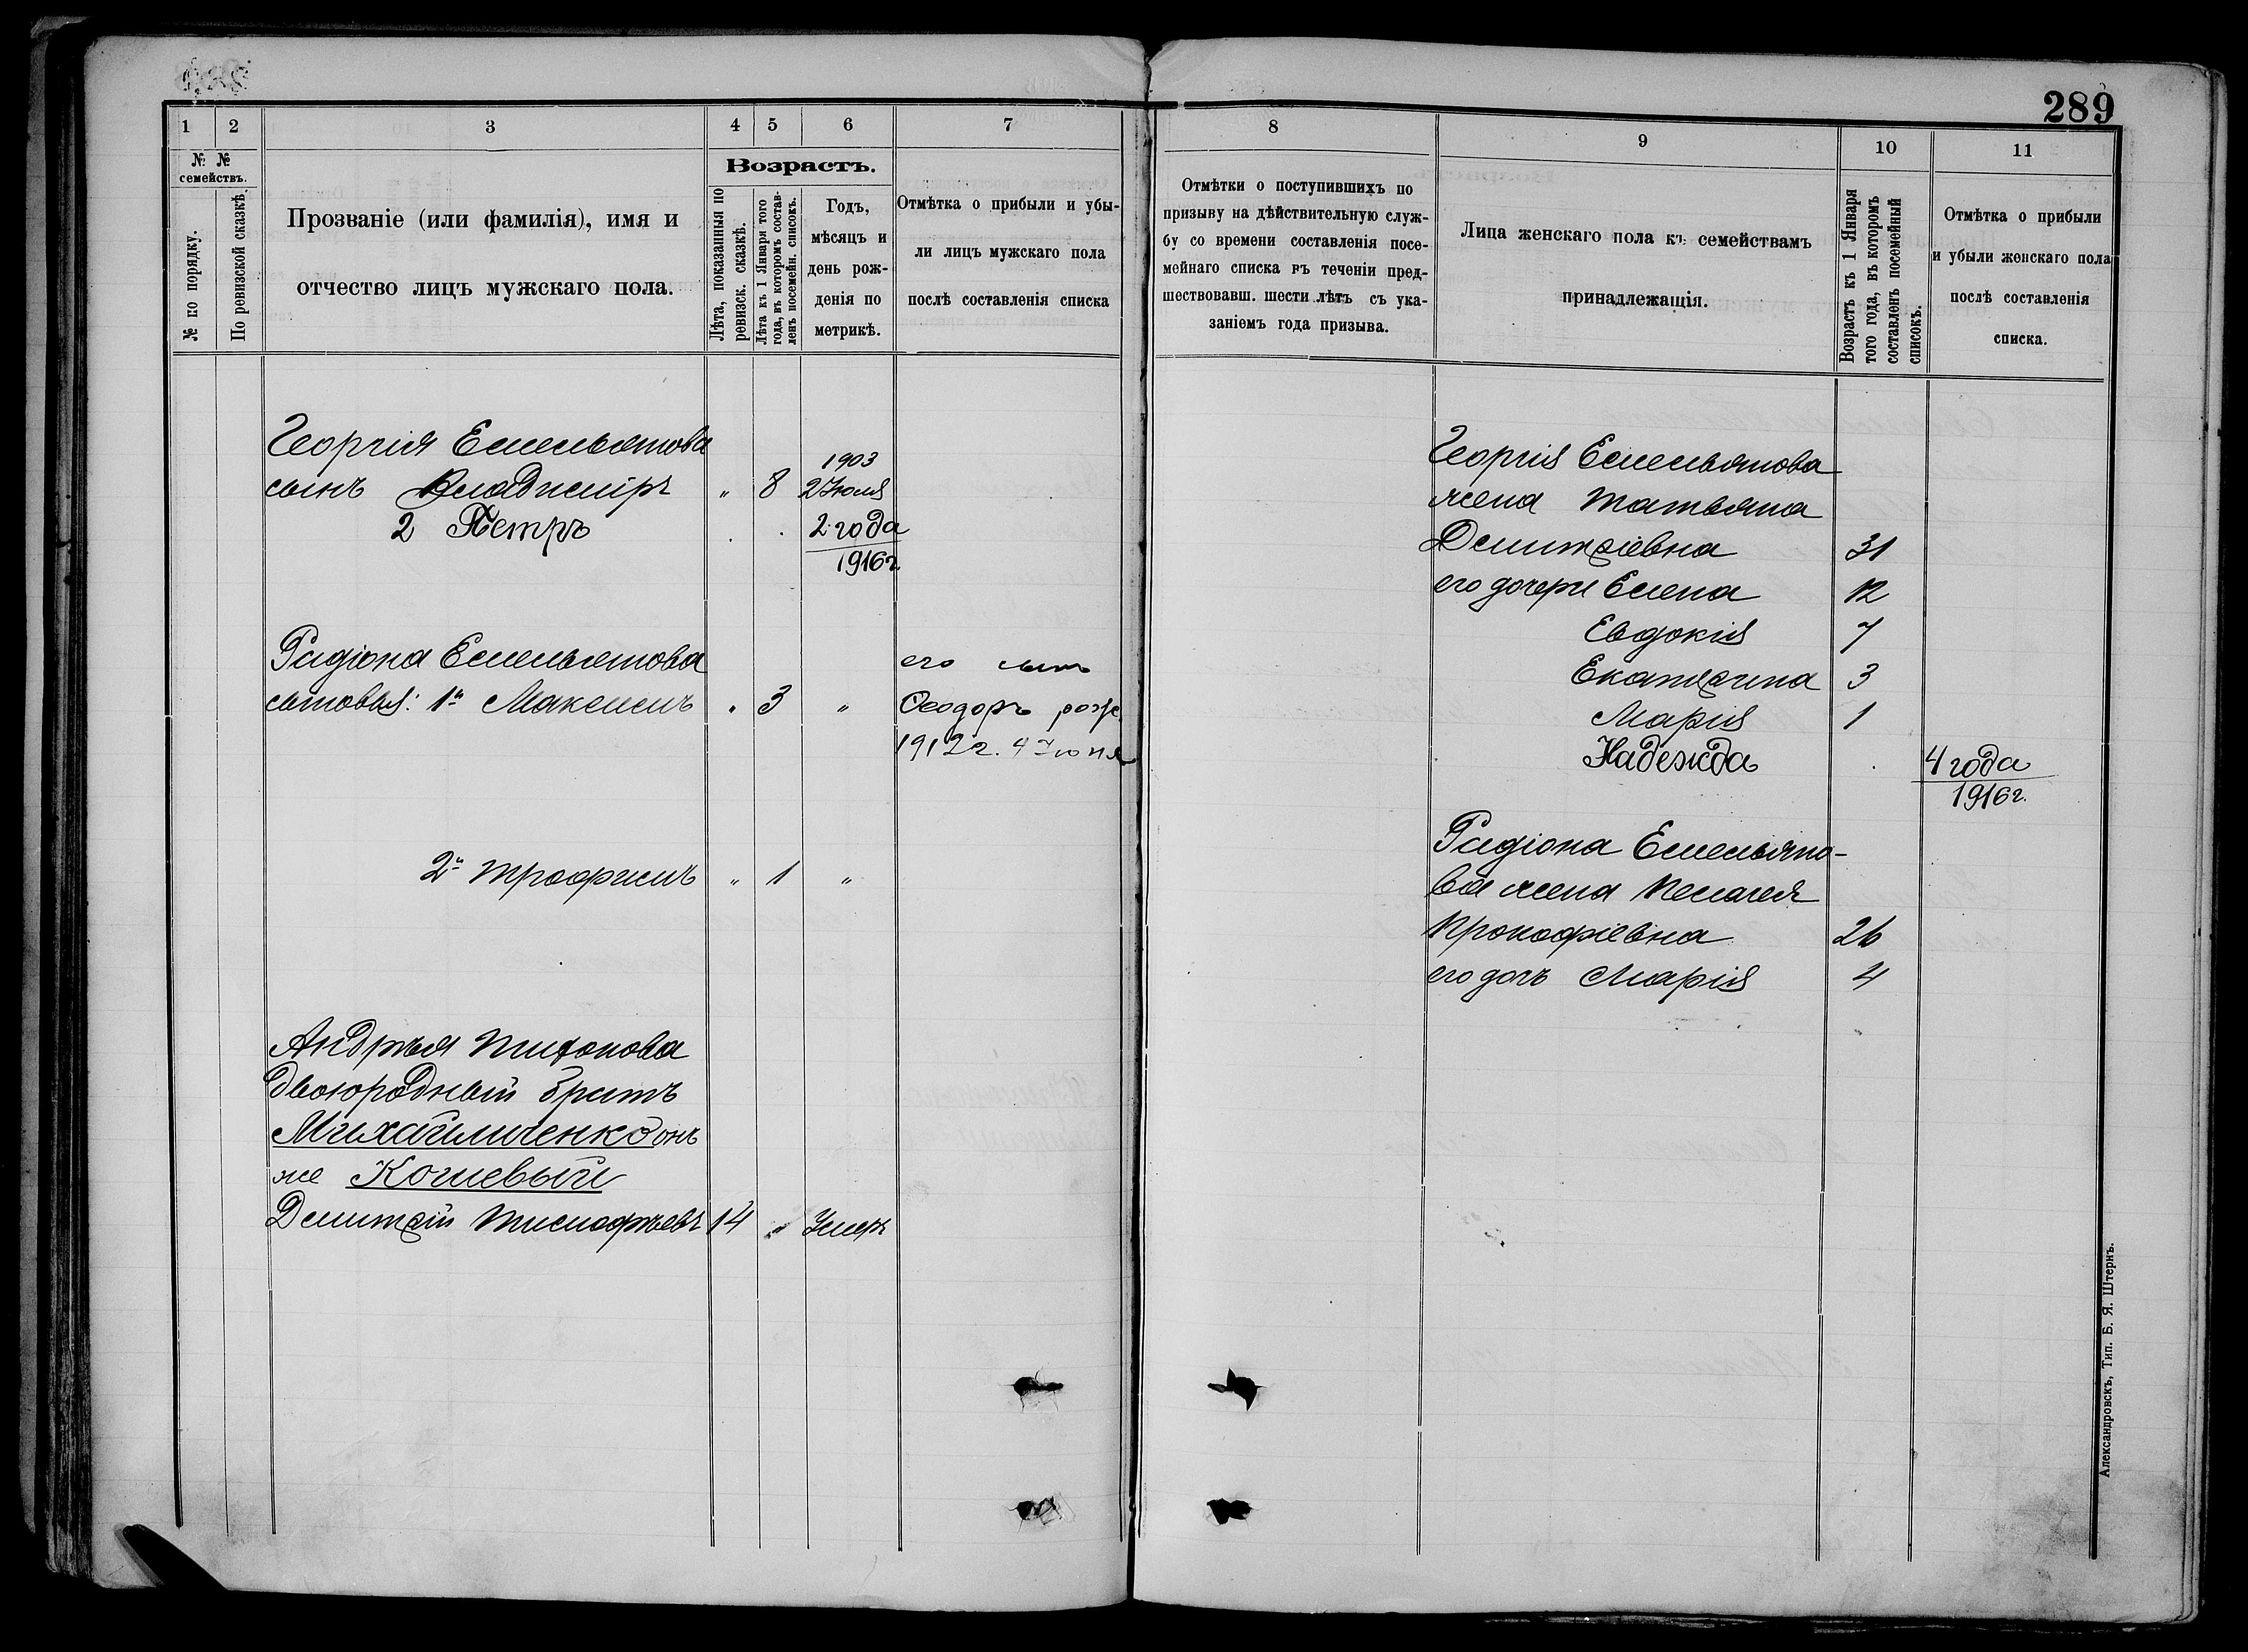 289
1
2
3
4
5
6
7
№ №
семействъ.
№ по порядку.
По ревизской сказкѣ.
Прозваніе (или фамилія), имя и
отчество лицъ мужскаго пола.
Возрастъ.
Лѣта, показанныя по
ревизск. сказкѣ.
Лѣта къ 1 Января того
года, въ которомъ состав-
ленъ посемейн. списокъ.
Годъ,
мѣсяцъ и
день рож-
денія по
метрикѣ.
Отмѣтка о прибыли и убы-
ли лицъ мужскаго пола
послѣ составленія списка
Георгія Емельянова
сынъ Владиміръ „ 8 1903
2 Іюля
2 Петръ . . 2 года
1916г.
Радіона Емельянова
сыновья: 1й Максимъ „ 3 „
его сынъ
Ѳеодоръ рожд.
1912г. 4 Іюня
2й Трофимъ „ 1 „
Андрѣя Тихонова
двоюродный братъ
Михайличенко онъ
же Кошевый
Дмитрій Тимофѣевъ 14 „ Умеръ
8
9
10
11
Отмѣтки о поступившихъ по
призыву на дѣйствительную служ-
бу со времени составленія посе-
мейнаго списка въ теченіи пред-
шествовавш. шести лѣтъ съ ука-
заніемъ года призыва.
Лица женскаго пола къ семействамъ
принадлежащія.
Возрастъ къ 1 Января
того года, въ которомъ
составленъ посемейный
списокъ.
Отмѣтка о прибыли
и убыли женскаго пола
послѣ составленія
списка.
Георгія Емельянова
жена Татьяна
Дмитріевна 31
его дочери Елена 12
Евдокія 7
Екатерина 3
Марія 1
Надежда . 4 года
1916г.
Радіона Емельяно-
ва жена Пелагея
Прокофіевна 26
его дочь Марія 4
Александровскъ, Тип. Б. Я. Штернъ.